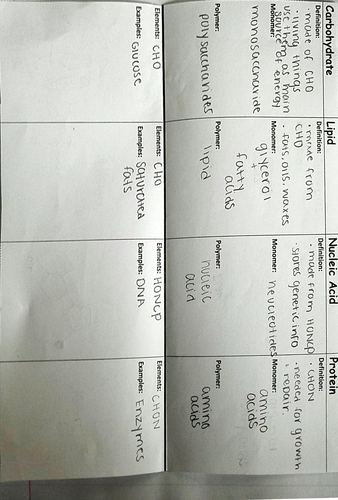 Carbohydrate
Definition:
• made of CHO
• living things
use them as main
source of energy
Monomer:
monosaccharide
Polymer:
polysaccharides
Elements: CHO
Examples: Glucose
Lipid
Definition:
• made from
CHO
• fats, oils, waxes
Monomer:
glycerol
+
fatty
acids
Polymer:
lipid
Elements: CHO
Examples: saturated
fats
Nucleic Acid
Definition:
• made from HONCP
• stores genetic info
Monomer:
neucleotides
Polymer:
nucleic
acid
Elements: HONCP
Examples: DNA
Protein
Definition:
• CHON
• needed for growth
+ repair
Monomer:
amino
acids
Polymer:
amino
acids
Elements: CHON
Examples: Enzymes